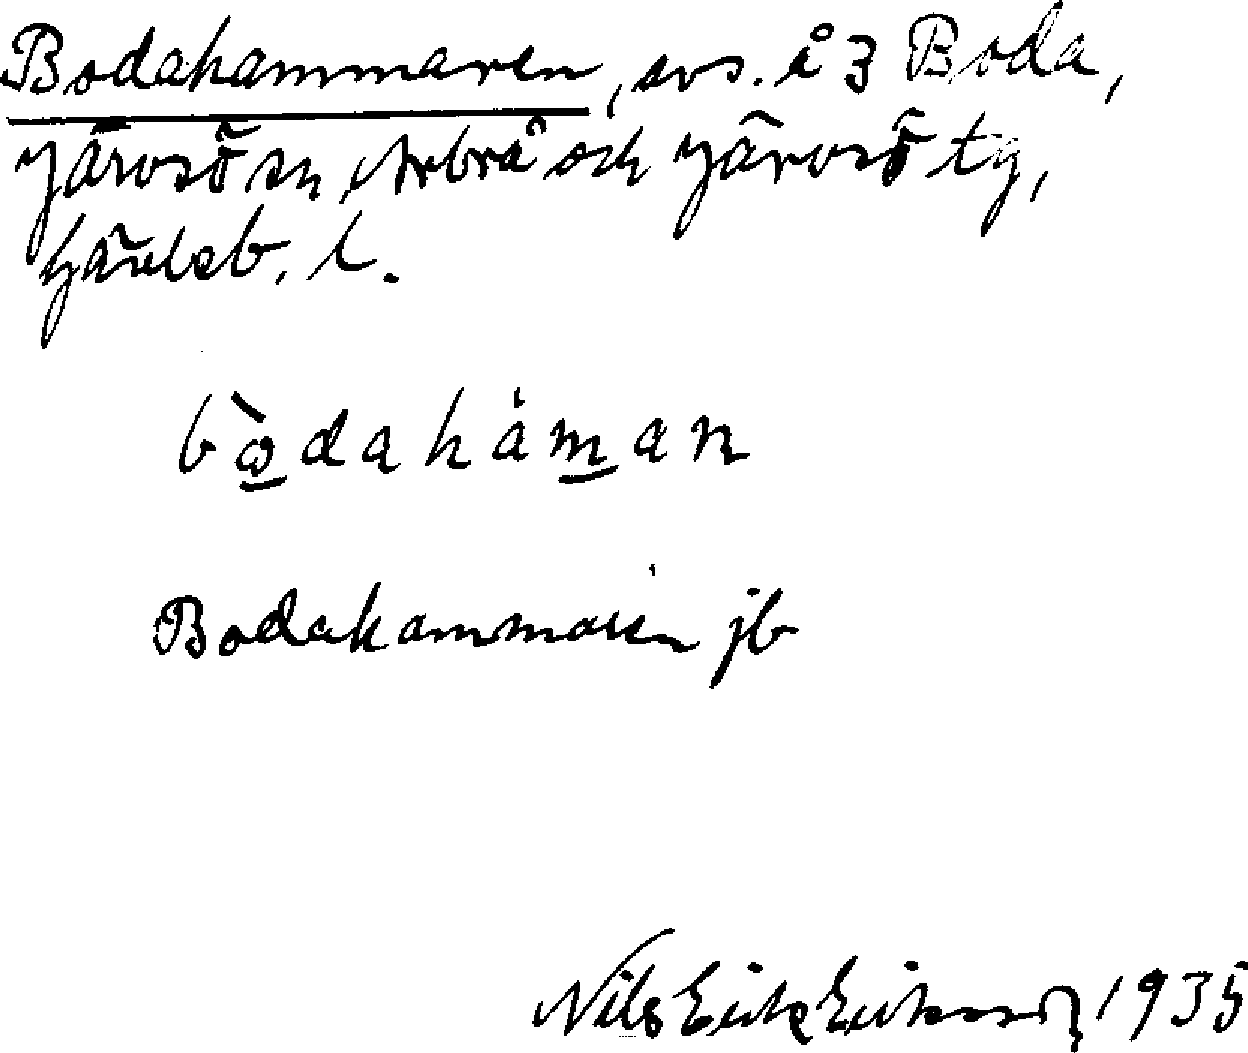 Bodahammaren, avs. å 3 Boda,
Järvsö sn, Arbrå och Järvsö tg,
Gävleb. l.
bò̱dahám̱an
Bodahammaren jb
Nils Erik Eriksson 1935